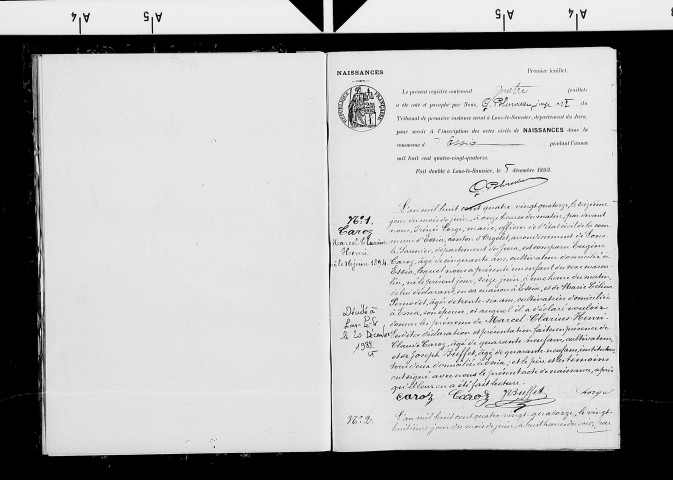 NAISSANCES
Premier feuillet.
Le présent registre contenant quatre feuillets
a été coté et paraphé par Nous, juge au du
Tribunal de première instance séant à Lons-le-Saunier, département du Jura,
pour servir à l'inscription des actes civils de NAISSANCES dans la
commune d'Essia pendant l'année
mil huit cent quatre-vingt-quatorze.
Fait double à Lons-le-Saunier, le décembre 1893.
N° 1.
Caroz
Marcel Clarius
Henri
né le 16 juin 1894.
Décédé à
Lons-le-S
le 20 Décembre
1982.
L'an mil huit cent quatre vingt quatorze, le seizième
jour du mois de juin, à onze heures du matin, par devant
nous, Irénée Lorge, maire, officier de l'état civil de la com-
mune d'Essia, canton d'Orgelet, arrondissement de Lons
le Saunier, département du Jura, est comparu Eugène
Caroz, âgé de cinquante ans, cultivateur domicilié à
Essia, lequel nous a présenté un enfant du sexe mascu-
lin, né le présent jour, seize juin, à heures du matin,
de lui déclarant, en sa maison à Essia, et de Marie Célina
âgée de trente six ans, cultivatrice domiciliée
à Essia, son épouse, et auquel il a déclaré vouloir
donner les prénoms de Marcel-Clarius-Henri.
Lesdites déclaration et présentation faites en présence de
Claude Caroz, âgé de quarante neuf ans, cultivateur,
et de Joseph Buffet, âgé de quarante neuf ans, instituteur,
tous deux domiciliés à Essia; et le père et les témoins
ont signé avec nous le présent acte de naissance, après
qu'il leur en a été fait lecture.
Caroz Caroz JBuffet Lorge
N° 2.
L'an mil huit cent quatre vingt quatorze, le vingt-
huitième jour du mois de juin, à huit heures du soir, par
A4
A5
A5
A4